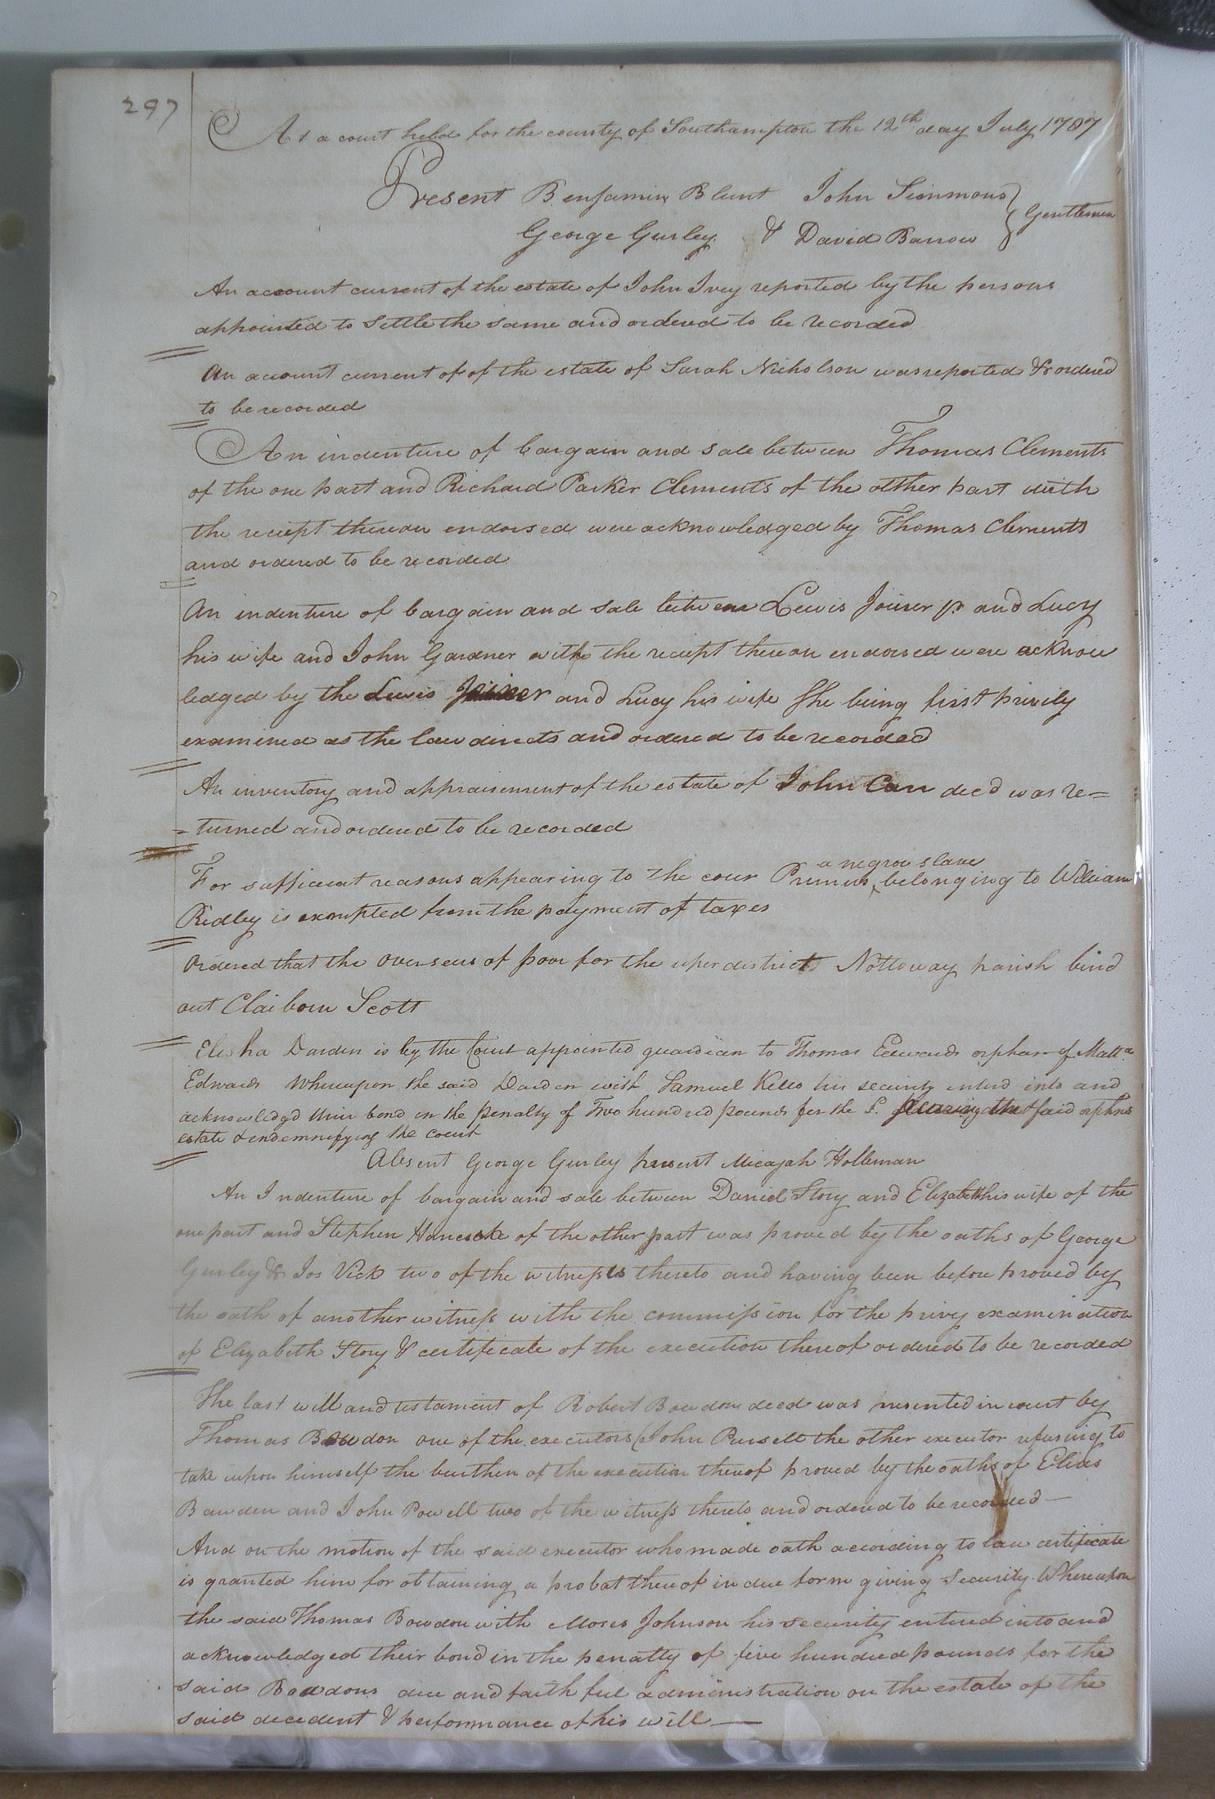 297
At a court held for the county of Southampton the 12th day July 1787
Present Benjamin Blunt John Simmons
Gentlemen
George Gurley & David Barrow
An account current of the estate of John Ivey reported by the persons
appointed to settle the same and ordered to be recorded
An account current of of the estate of Sarah Nicholson was reported & ordered
to be recorded
An indenture of bargain and sale between Thomas Clements
of the one part and Richard Parker Clements of the other part with
the reciept thereon endorsed were acknowledged by Thomas Clements
and ordered to be recorded
An indenture of bargain and sale between Lewis Joiner jr and Lucy
his wife and John Gardner with the reciept thereon endorsed were acknow
ledged by the Lewis Joiner and Lucy his wife She being first privily
examined as the law directs and ordered to be recorded
An inventory and appraisement of the estate of John Carr decd was re=
=turned and ordered to be recorded
a negroe slave
For sufficient reasons appearing to the cour Primus belonging to William
Ridley is exempted from the payment of taxes
Ordered that the overseers of poor for the uper district Nottoway parish bind
out Claiborn Scott
Elisha Darden is by the Court appointed guardian to Thomas Edwards orphan of Matt.
Edwards Whereupon the said Darden with Samuel Kello his security enterd into and
acknowledgd their bond in the penalty of Two hundred pounds for the S. securing the said orphns
estate & indemnifying the court
Absent George Gurley present Micajah Holleman
An Indenture of bargain and sale between Daniel Story and Elizabeth his wife of the
one part and Stephen Hancock of the other part was proved by the oaths of George
Gurley & Jos Vick two of the witnesses thereto and having been before proved by
the oath of another witness with the commission for the privy examination
of Elizabeth Story & certificate of the execution thereof ordered to be recorded
The last will and testament of Robert Bowdon decd was presented in court by
Thomas Bowdon one of the executors (John Pursell the other executor refusing to
take upon himself the burthen of the execution thereof proved by the oaths of Elias
Bawden and John Powell two of the witness thereto and ordered to be recorded —
And on the motion of the said executor who made oath according to law certificate
is granted him for obtaining a probat thereof in due form giving security. Whereupon
the said Thomas Bowdon with Moses Johnson his security entered into and
acknowledged their bond in the penalty of five hundred pounds for the
said Bowdons due and faithful administration on the estate of the
said decedent & performance of his will —